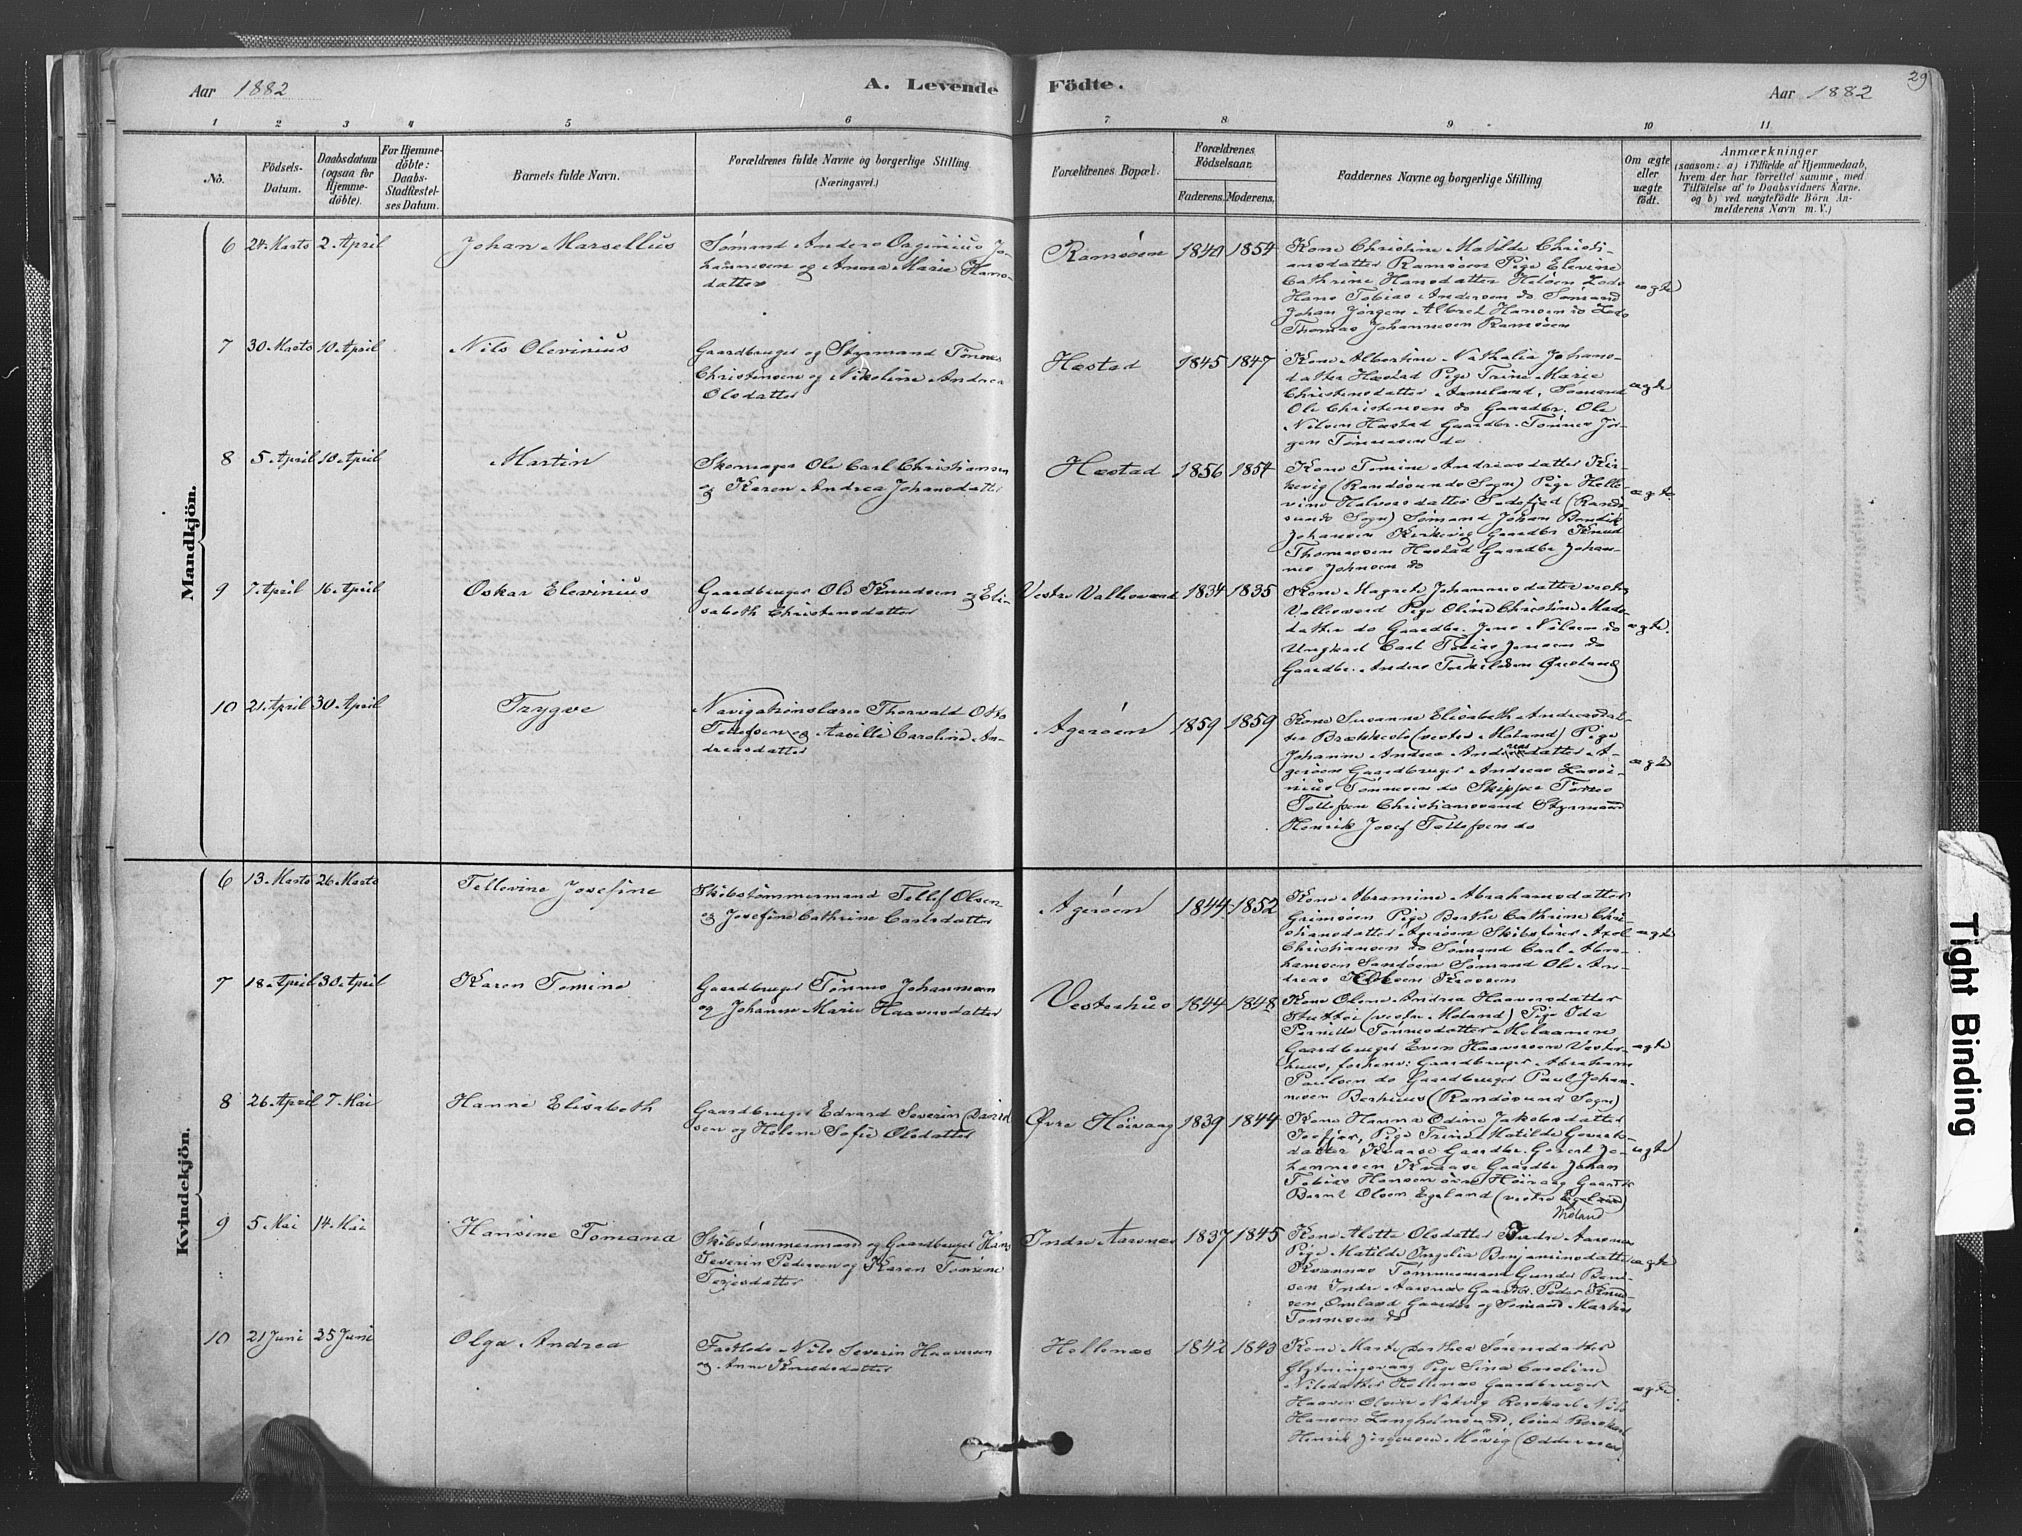 Aar 1882
A. Levende Födte.
Aar 1882
29
1 2 3 4 5 6 7 8 9 10 11
No.
Födsels-
Datum.
Daabsdatum
(ogsaa for
Hjemme-
döbte).
For Hjemme-
döbte:
Daabs-
Stadfæstel-
ses Datum.
Barnets fulde Navn.
Forældrenes fulde Navne og borgerlige Stilling.
(Næringsvei.)
Forældrenes Bopæl.
Forældrenes
Födselsaar.
Faderens. Moderens.
Faddernes Navne og borgerlige Stilling
Om ægte
eller
uægte
födt.
Anmærkninger
(saasom: a) i Tilfælde af Hjemmedaab,
hvem der har forrettet samme, med
Tilföielse af to Daabsvidners Navne.
og b) ved uægtefödte Börn An-
melderens Navn m. V.)
Mandkjön.
6 24 Marts 2 April
Johan Marsellius
Sømand Anders Jo-
hannesen og Anna Marie Hans-
datter
Ramsøen
1840 1854
Kone Christine Matilde Christi-
ansdatter Ramsøen Pige Elevine
Cathrine Hansdatter Heløen Lods
Hans Tobias Andersen do Sømand
Johan Jörgen Albret Hansen do Lods
Thomas Johannesen Ramsøen
ægte
7 30 Marts 10 April
Nils Olevinius
Gaardbruger og Styrmand Tønnes
Christensen og Nikoline Andrea
Olsdatter
Hæstad
1845 1847
Kone Albertine Nathalia Johans-
datter Hæstad Pige Trine Marie
Christensdatter Aamland, Sømand
Ole Christensen do Gaardbr. Ole
Nilsen Hæstad Gaardbr. Tønnes Jör-
gen Tønnesen do
ægte
8 5 April 10 April
Martin
Skomager Ole Carl Christiansen
og Karen Andrea Johansdatter
Hæstad
1856 1854
Kone Tomine Andreasdatter Kir-
kevig (Randøsunds Sogn) Pige Helle-
vine Halvorsdatter (Rand-
øsunds Sogn) Sømand Johan Bendik
Johansen Kirkevig Gaardbr Knud
Thomassen Hæstad Gaardbr Johan-
nes Johnsen do
ægte
9 7 April 16 April
Oskar Elevinius
Gaardbruger Ole Knudsen og Eli-
sabeth Christensdatter
Vestre Vallesværd
1834 1835
Kone Magrete Johannesdatter vestre
Vallesværd Pige Oline Christine Mads-
datter do Gaardbr. Jens Nilsen do
Ungkarl Carl Tobias Jensen do
Gaardbr. Anders Terkildsen
ægte.
10 21 April 30 April
Trygve
Navigationslærer Thorvald Otto
Tellefsen og Caroline An-
dreasdatter
Agerøen
1859 1859
Kone Susanne Elisabeth Andreasdat-
ter Brækkestø (vestre Moland) Pige
Johanne Andrea Andreasdatter A-
gerøen Gaardbruger Andreas
Tønnesen do Skipper Tønnes
Tellefsen Christianssand Styrmand
Henrik Josef Tellefsen do
ægte
Kvindekjön.
6 13 Marts 26 Marts
Tellevine Josefine
Skibstømmermand Tellef Olsen
og Josefine Cathrine Carlsdatter
Agerøen
1844 1852
Kone Abramine Abrahamsdatter
Grimsøen Pige Berthe Cathrine Chri-
stiansdatter Agerøen Skibsfører Axel
Christiansen do Sømand Carl Abra-
hamsen Sandøen Sømand Ole An-
dreas
ægte
7 18 April 30 April
Karen Tomine
Gaardbruger Tønnes Johannesen
og Johanne Marie Haaversdatter
Vesterhus
1844 1848
Kone Olene Andrea Haaversdatter
(vestre Moland) Pige Ida
Pernille Tønnesdatter
Gaardbruger Even Haaversen Vester-
huus, Gaardbruger Abraham
Paulsen do Gaardbruger Paul Johan-
nesen (Randøsund Sogn)
ægte
8 26 April 7 Mai
Hanne Elisabeth
Gaardbruger Edvard Severin David-
sen og Helene Sofie Olsdatter
Øvre Høivaag
1839 1844
Kone Hanna Odine Jakobsdatter
Pige Trine Matilde Goverts-
datter Kvaase Gaardbr. Govert Jo-
hannesen Kvaase Gaardbr Johan
Tobias Hansen øvre Høivaag Gaardb.
Bernt Olsen Egeland (vestre Egeland)
Moland
ægte
9 5 Mai 14 Mai
Hansine Tomana
Skibstømmermand og Gaardbruger Hans
Severin Pedersen og Karen Tomine
Terjesdatter
Indre Aarsnæs
1837 1845
Kone Mette Olsdatter Indre Aarsnes
Pige Matilde Benjaminsdatter
Tømmermand Gunder
Indre Aarsnæs Gaardbr. Peder Knud-
sen Omland Gaardbr og Sømand
Tønnesen do
ægte
10 21 Juni 25 Juni
Olga Andrea
Nils Severin Haaversen
og Anne Knudsdatter
Hellenæs
1842 1843
Kone Marte Dorthea Sørensdatter
Pige Sina Caroline
Nilsdatter Hellenæs Gaardbruger
Haaver Olsen Natvig Nils
Hansen Langholmsund,
Henrik Jörgensen Møvig (Oddernæs
ægte
Tight Binding